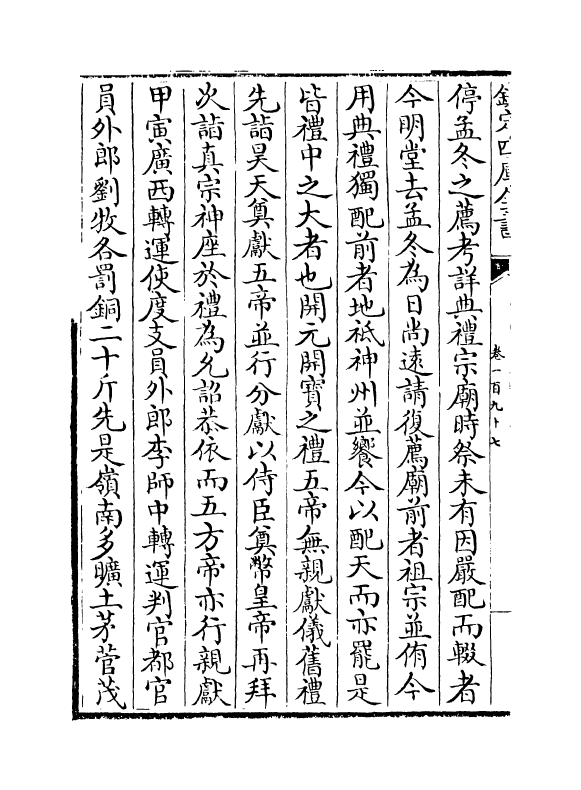 欽定四庫全書
卷一百九十七
停孟冬之薦考詳典禮宗廟時祭未有因嚴配而輟者
今明堂去孟冬為日尚遠請復薦廟前者祖宗並侑今
用典禮獨配前者地祇神州並饗今以配天而亦罷是
皆禮中之大者也開元開寶之禮五帝無親獻儀舊禮
先詣昊天奠獻五帝並行分獻以侍臣奠幣皇帝再拜
次詣真宗神座於禮為允詔恭依而五方帝亦行親獻
甲寅廣西轉運使度支員外郎李師中轉運判官都官
員外郎劉牧各罰銅二十斤先是嶺南多曠土茅菅茂